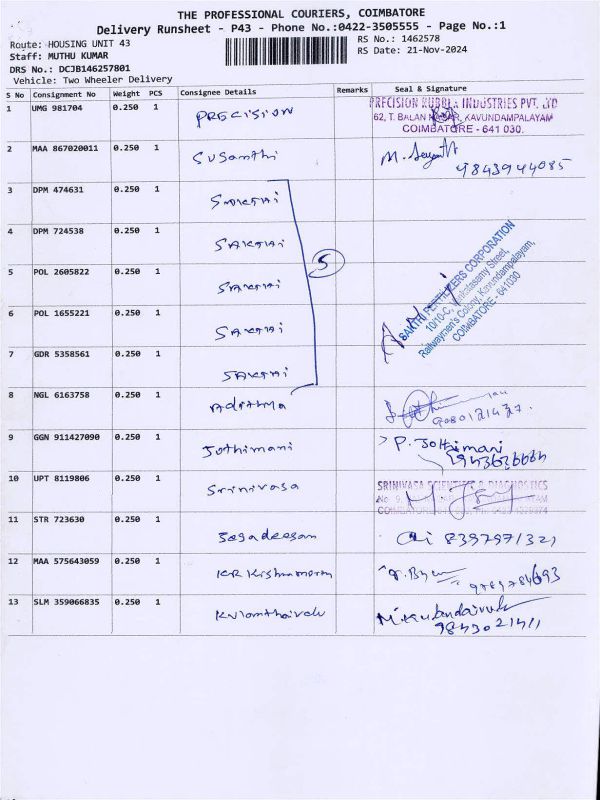 THE PROFESSIONAL COURIERS, COIMBATORE
Delivery Runsheet - P43 - Phone No.:0422-3505555 - Page No.:1
Route: HOUSING UNIT 43
RS No.: 1462578
Staff: MUTHU KUMAR
RS Date: 21-Nov-2024
DRS No.: DCJB146257801
Vehicle: Two Wheeler Delivery
S No Consignment No Weight PCS Consignee Details Remarks Seal & Signature
1 UMG 981704 0.250 1 PRECISION PRECISION RUBBER INDUSTRIES PVT. LTD
62, T. BALAN NAGAR, KAVUNDAMPALAYAM
COIMBATORE - 641 030.
2 MAA 867020011 0.250 1 Susanthi M.
9843944085
3 DPM 474631 0.250 1 SAKTHI
4 DPM 724538 0.250 1 SAKTHI
5 POL 2605822 0.250 1 SAKTHI
5
SAKTHI FERTILIZERS CORPORATION
10/10-C, Venkatasamy Street,
Railwaymen's Colony, Kavundampalayam,
COIMBATORE - 641030
6 POL 1655221 0.250 1 SAKTHI
7 GDR 5358561 0.250 1 SAKTHI
8 NGL 6163758 0.250 1 Adithma
9080121427.
9 GGN 911427090 0.250 1 Jothimani P. Jothimani
10 UPT 8119806 0.250 1 Srinivasa SRINIVASA SCIENTIFIC & DIAGNOSTICS
No 9,
COIMBATORE
11 STR 723630 0.250 1 Jegadeesan 8397971321
12 MAA 575643059 0.250 1 KR Krishnamoorthy
9789784693
13 SLM 359066835 0.250 1 Kulanthaivelu M. Kulandaivelu
9843021411